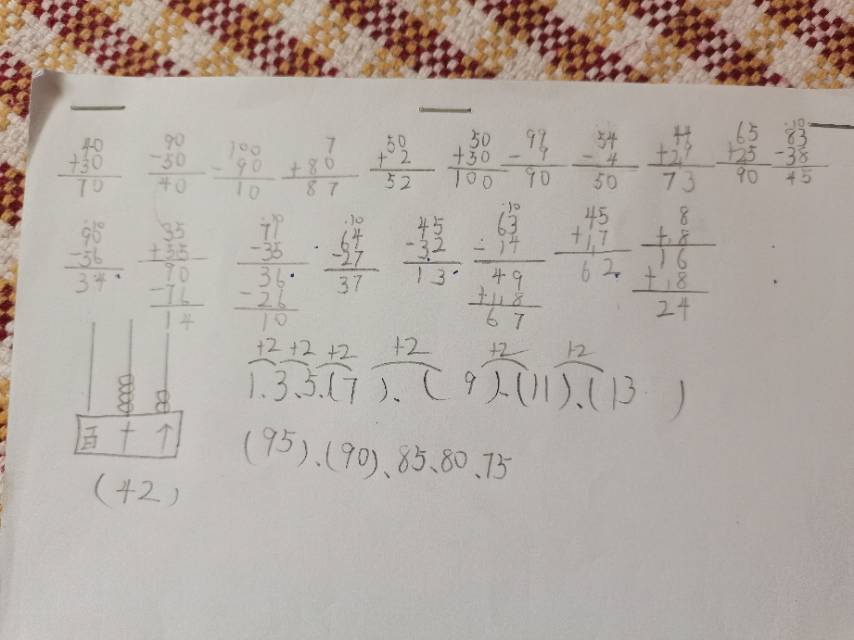 40 90 100 7 50 50 99 54 44 65 83
+30 -50 -90 +80 +2 +50 -9 -4 +29 +25 -38
70 40 10 87 52 100 90 50 73 90 45
90 35 71 64 45 63 45 8
-56 +55 -35 -27 -32 -14 +17 +8
34 90 36 37 13 49 62 16
-76 -26 +18 +8
14 10 67 24
+2 +2 +2 +2 +2 +2
1、3、5、(7)、(9)、(11)、(13)
百 十 个
(95)、(90)、85、80、75
(42)